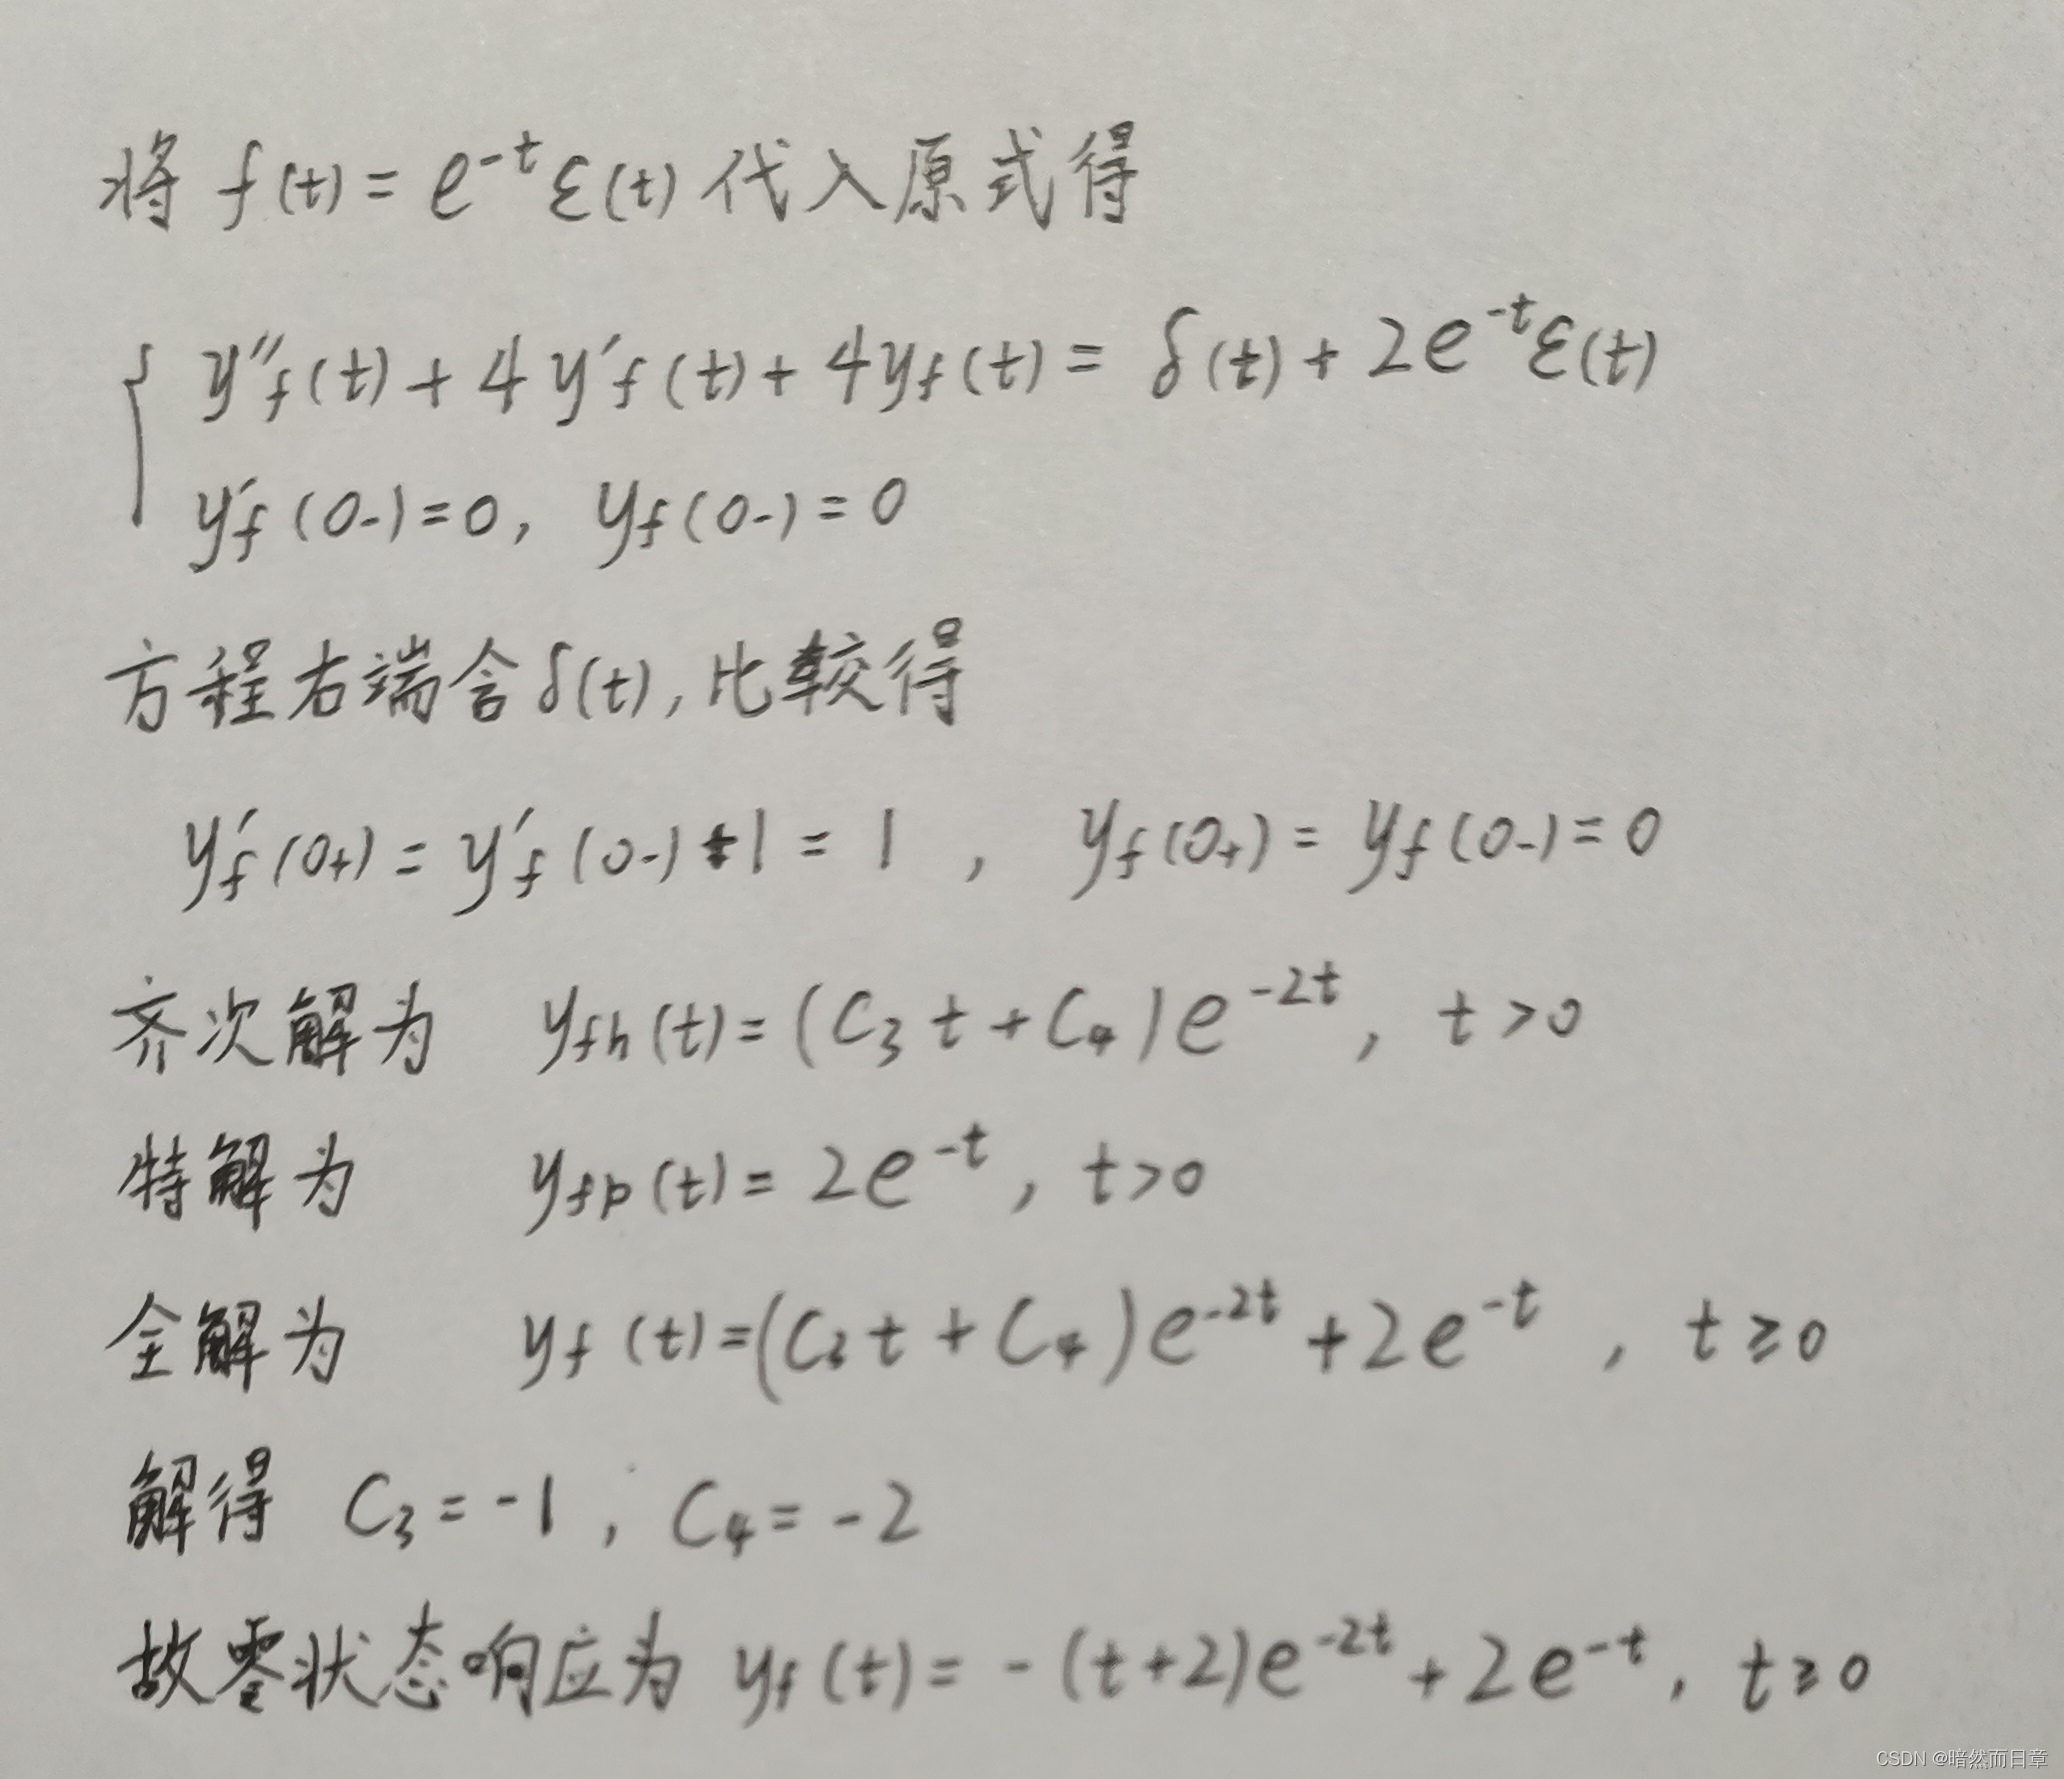 将 f(t) = e^{-t}ε(t) 代入原式得
y''_f(t) + 4y'_f(t) + 4y_f(t) = δ(t) + 2e^{-t}ε(t)
y'_f(0-) = 0, y_f(0-) = 0
方程右端含δ(t), 比较得
y'_f(0+) = y'_f(0-) + 1 = 1 , y_f(0+) = y_f(0-) = 0
齐次解为 y_{fh}(t) = (C_3 t + C_4)e^{-2t}, t > 0
特解为 y_{fp}(t) = 2e^{-t}, t > 0
全解为 y_f(t) = (C_3 t + C_4)e^{-2t} + 2e^{-t} , t ≥ 0
解得 C_3 = -1 , C_4 = -2
故零状态响应为 y_f(t) = -(t+2)e^{-2t} + 2e^{-t}, t ≥ 0
CSDN @暗然而日章